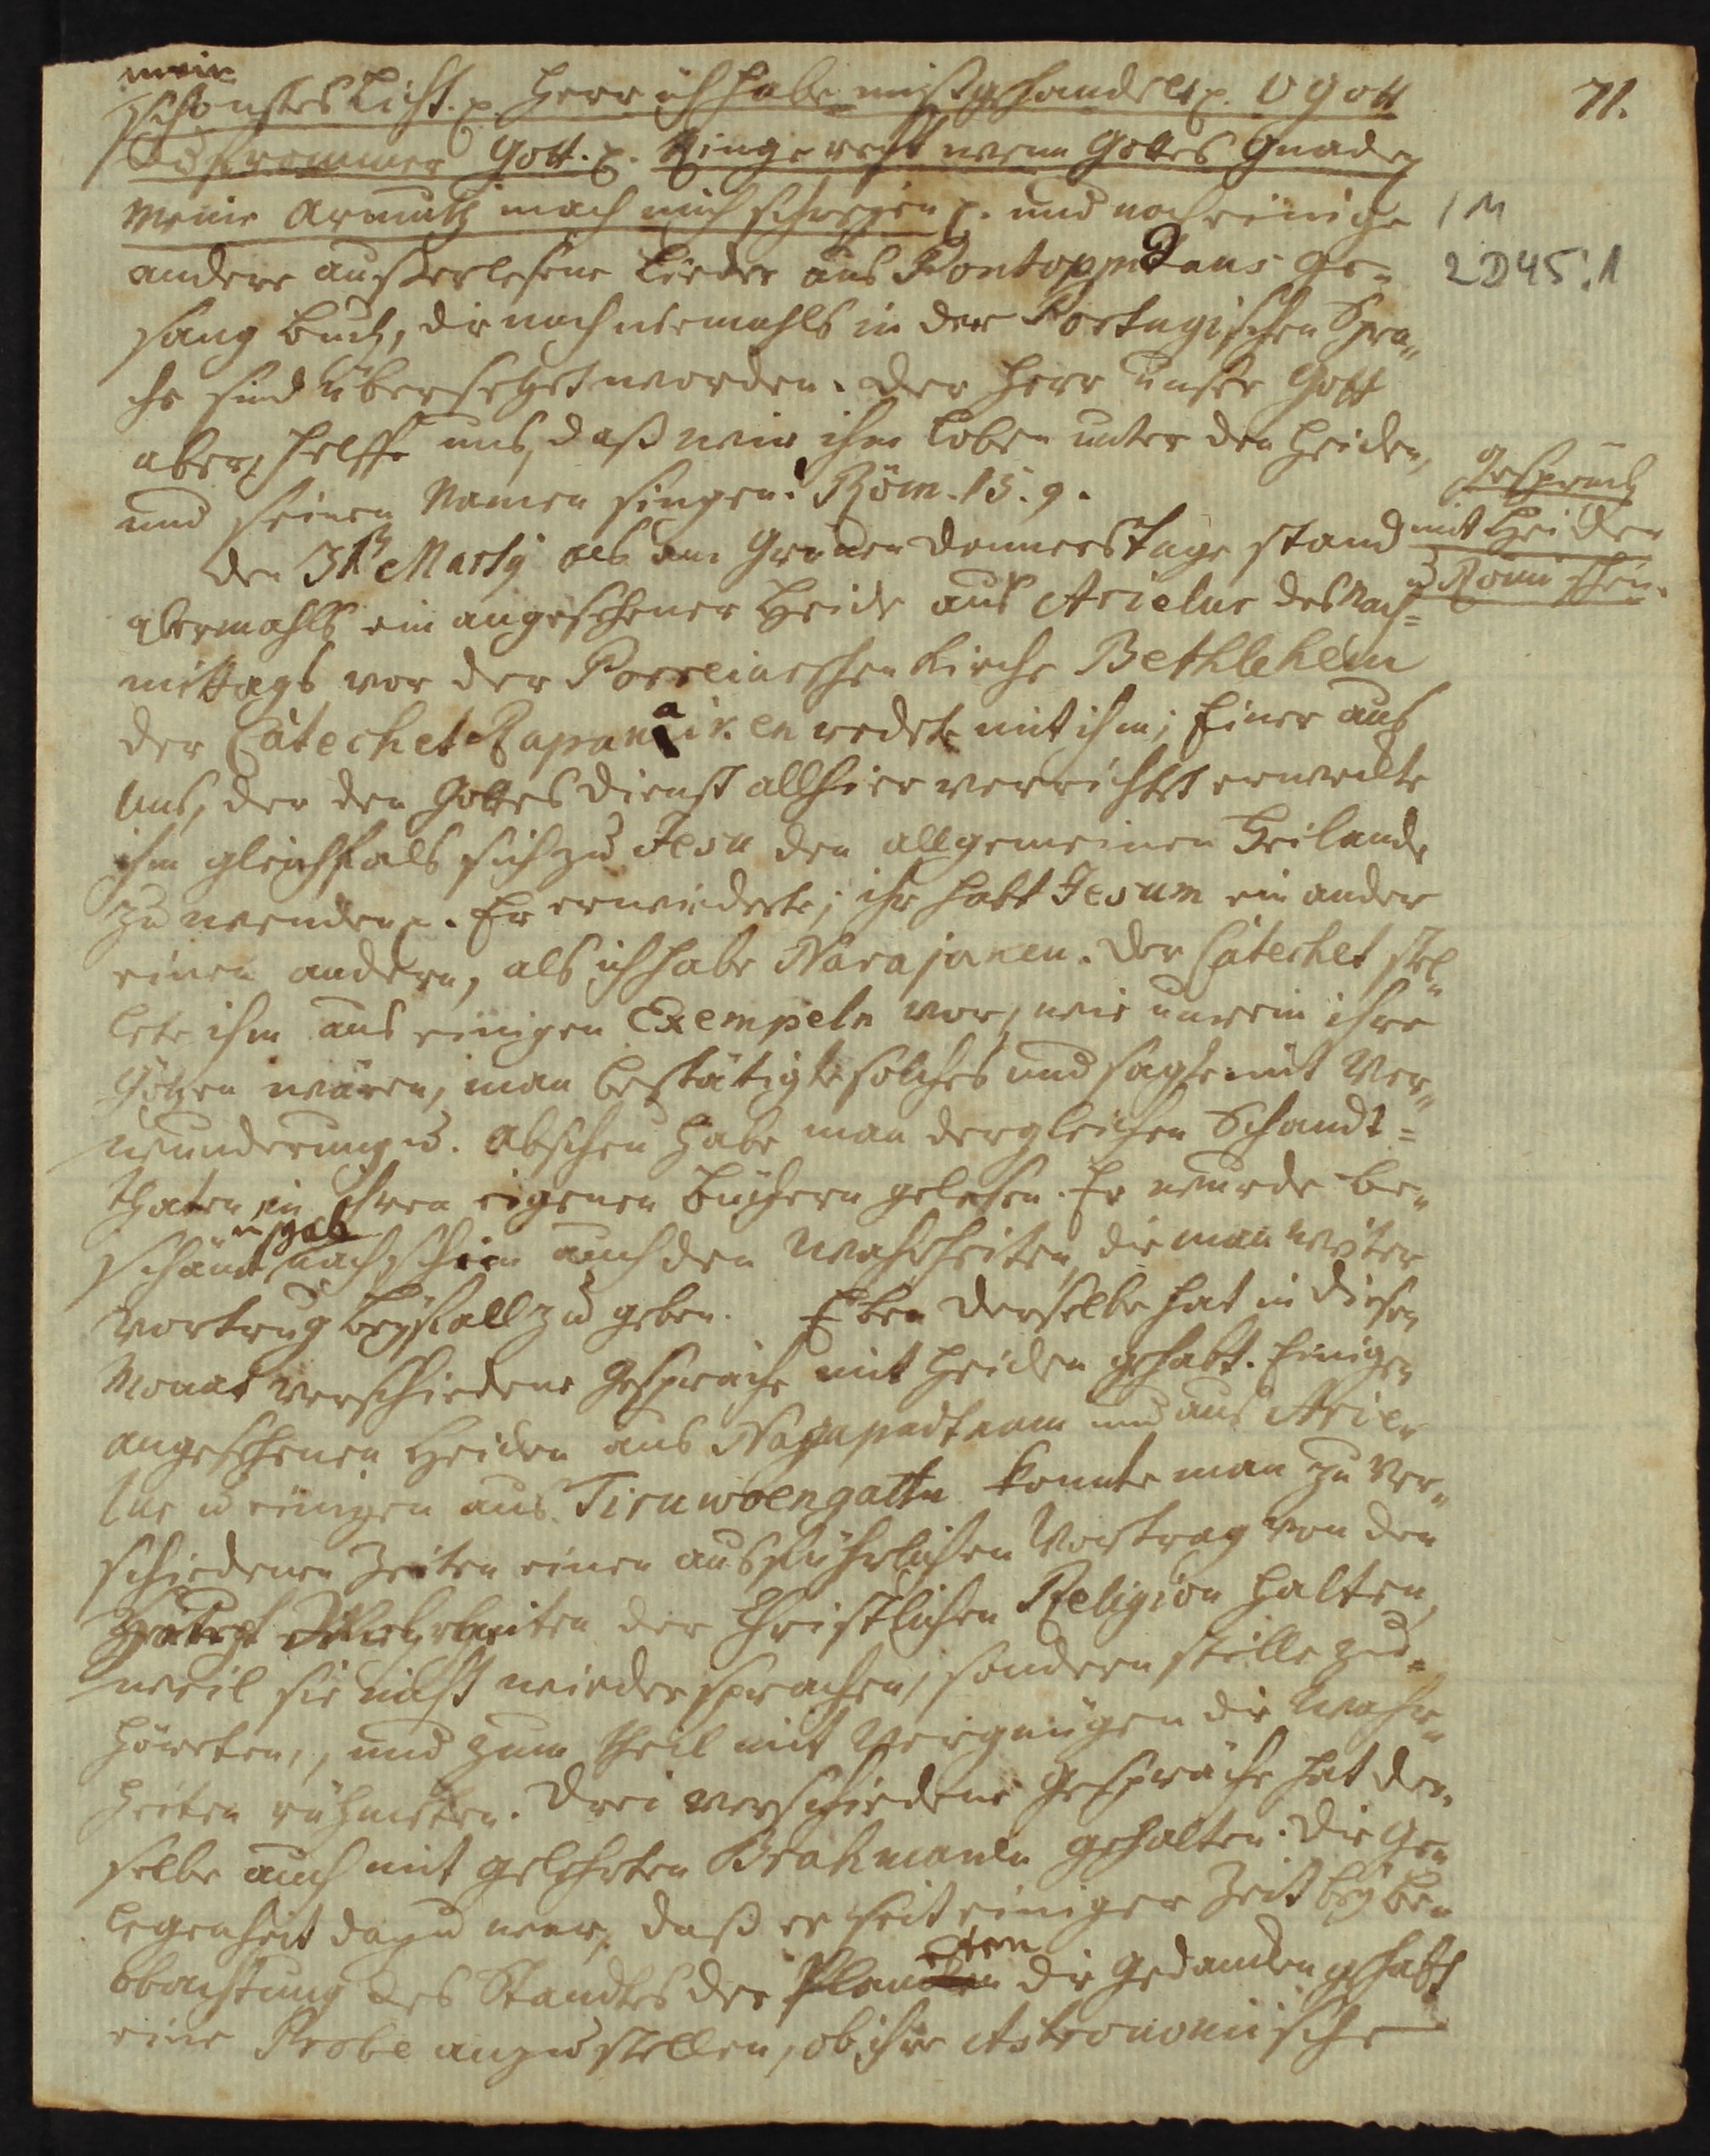 mein
schönstes Licht. p. Herr ich habe mißgehandelt p. O Gott
du frommer Gott. p. Ringe recht wenn Gottes Gnade p
Meine Armuth mach mich schreyen p. und noch einige
andere außerlesene Lieder aus Pontoppidans Ge-
sang Buch, die noch niemahls in der Portugischen Spra-
che sind übersetzet worden. Der Herr unser Gott
aber helffe uns, daß wir ihn loben unter den Heiden,
und seinen Namen singen. Röm. 15. 9.
Den 31 Martij als am Grünen Donnerstage stand
abermahls ein angesehener Heide aus Arielur des Nach-
mittags vor der Poreiarschen Kirche Bethlehem
der Catechet Rajanaiken redete mit ihm; Einer aus
uns, der den Gottesdienst allhier verrichtet erweckte
ihn gleichfals sich zu Jesu den allgemeinen Heilande
zu wenden p. Er erwiederte; ihr habt Jesum ein ander
einen andern, als ich habe Narajanen. Der Catechet stel-
lete ihm aus einigen Exempeln vor, wie unrein ihre
Götzen wären, man bestätigte solches und sagte mit Ver-
wunderung u. Abscheu habe man dergleichen Schandt-
thaten in ihren eigenen Büchern gelesen. Er wurde be-
schämt u gab nach, schien auch den Wahrheiten, die man weiter
vortrug Beyfall zu geben. Eben derselbe hat in diesen
Monat verschiedene Gespräche mit Heiden gehabt. Einigen
angesehenen Heiden aus Nagapadtnam und aus Arie-
lur u einigen aus Tiruwoengattu konnte man zu ver-
schiedenen Zeiten einen ausführlichen Vortrag von den
Haupt Wahrheiten der Christlichen Religion halten,
weil sie nicht wiedersprachen, sondern stille zu-
höreten, und zum theil mit Vergnügen die Wahr-
heiten rühmeten. Drei verschiedene Gespräche hat der-
selbe auch mit gelehrten Brahmanen gehalten. Die Ge-
legenheit dazu war, daß er seit einiger Zeit bey Be-
obachtung des Standes der Planeten die Gedancken gehabt
eine Probe anzustellen, ob ihre Astronomische
71.
/ M
2 D 45:1
Gespräch
mit Heiden
u Römischen.